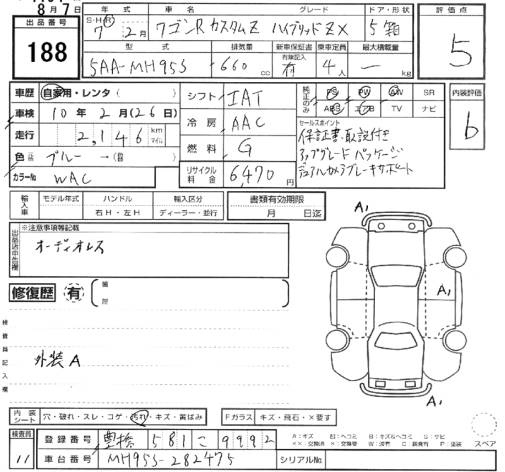 8月7日
出品番号
188
年式 車名 グレード ドア・形状 評価点
S・H・R 7年 2月 ワゴンR カスタムZ ハイブリッドZX 5 箱 5
型式 排気量 新車保証書 乗車定員 最大積載量
有限記入
5AA-MH95S 660cc 有 4人 — kg
車歴 自家用・レンタ( )
車検 10年2月(26日)
走行 2,146 km マイル
色 ブルー→(
カラーNo WAC
シフト IAT
冷房 AAC
燃料 G
リサイクル料金 6,470円
純正品のみ PS PW AW SR
ABS エアB TV ナビ
内装評価
b
セールスポイント
保証書、取説付き
アップグレードパッケージ
デュアルカメラブレーキサポート
輸入車 モデル年式 ハンドル 輸入区分 書類有効期限
年 右H・左H ディーラー・並行 月 日迄
※注意事項等記載
出品店申告欄
オーディオレス
修復歴 有
箇所
検査員記入欄
外装A
A₁ A₁
A₁
内装シート 穴・破れ・スレ・コゲ・汚れ・キズ・黄ばみ Fガラス キズ・飛石・×要す
検査員 11
登録番号 豊橋 581 こ 9992
車台番号 MH95S-282475 シリアルNo.
A:キズ U:ヘコミ B:キズ&ヘコミ S:サビ
××:交換済 ×:交換要 W:波有 C:腐食有 P:塗装
スペア